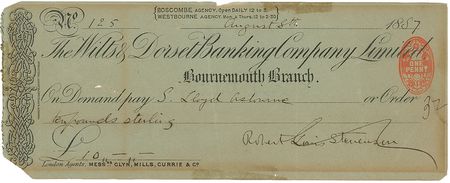 BOSCOMBE, AGENCY, Open DAILY 12 to 2.
WESTBOURNE AGENCY. Mon. & Thurs. 12 to 2-30
No. 125 August 8th. 1887
The Wilts & Dorset Banking Company Limited
Bournemouth Branch.
ONE PENNY
On Demand pay S. Lloyd Osbourne or Order
ten pounds sterling
Robert Louis Stevenson
£ 10
London Agents, MESSRS GLYN, MILLS, CURRIE & Co.